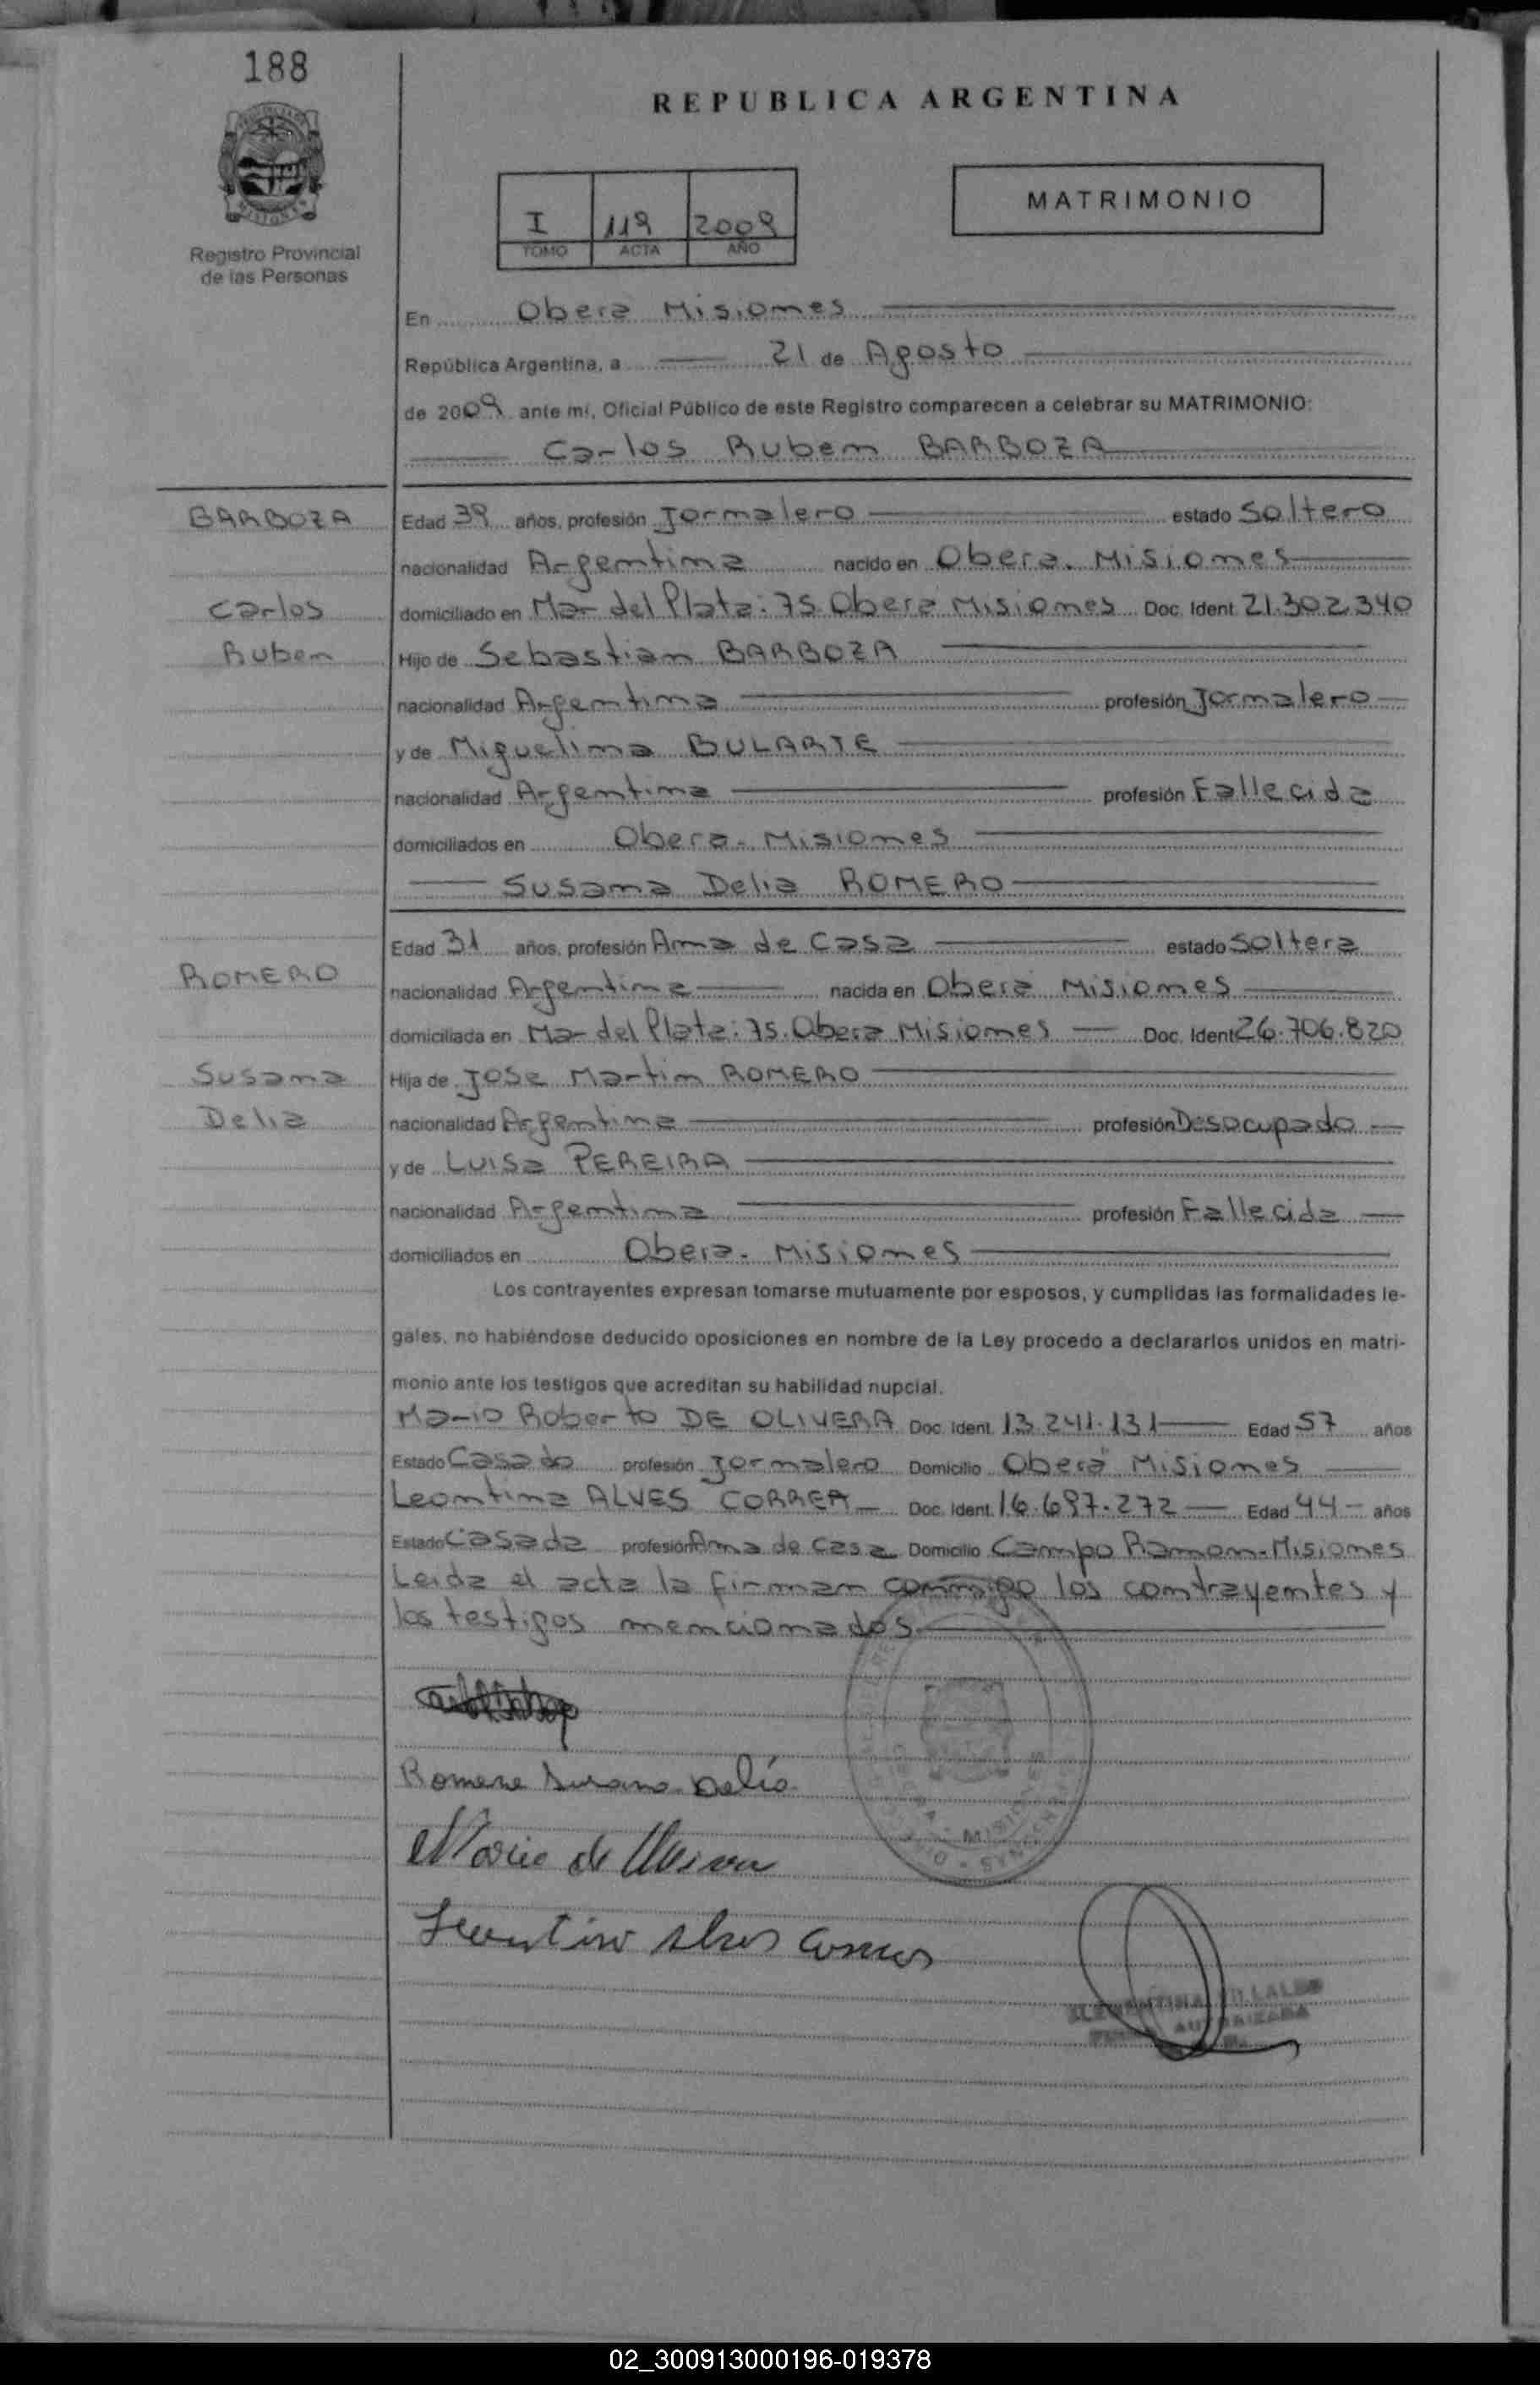 188
REPUBLICA ARGENTINA
MATRIMONIO
I 119 2009
TOMO ACTA AÑO
Registro Provincial
de las Personas
En Obera Misiones
República Argentina, a 21 de Agosto
de 2009 ante mí, Oficial Público de este Registro comparecen a celebrar su MATRIMONIO:
Carlos Ruben BARBOZA
BARBOZA
Carlos
Ruben
Edad 39 años, profesión Jornalero estado Soltero
nacionalidad Argentina nacido en Obera. Misiones
domiciliado en Mar del Plata: 75. Obera Misiones Doc. Ident. 21.302.340
Hijo de Sebastian BARBOZA
nacionalidad Argentina profesión Jornalero
y de Miguelina BULARTE
nacionalidad Argentina profesión Fallecida
domiciliados en Obera. Misiones
Susana Delia ROMERO
ROMERO
Susana
Delia
Edad 31 años, profesión Ama de Casa estado Soltera
nacionalidad Argentina nacida en Obera Misiones
domiciliada en Mar del Plata: 75. Obera Misiones Doc. Ident 26.706.820
Hija de Jose Martin ROMERO
nacionalidad Argentina profesión Desocupado
y de Luisa PEREIRA
nacionalidad Argentina profesión Fallecida
domiciliados en Obera. Misiones
Los contrayentes expresan tomarse mutuamente por esposos, y cumplidas las formalidades le-
gales, no habiéndose deducido oposiciones en nombre de la Ley procedo a declararlos unidos en matri-
monio ante los testigos que acreditan su habilidad nupcial.
Mario Roberto DE OLIVERA Doc. Ident. 13.241.131 Edad 57 años
Estado Casado profesión Jornalero Domicilio Obera Misiones
Leontina ALVES CORREA Doc. Ident. 16.697.272 Edad 44 años
Estado Casada profesión Ama de Casa Domicilio Campo Ramon-Misiones
Leida el acta la firman conmigo los contrayentes y
los testigos mencionados
Romero Susana Delia
Mario de Olivera
Leontina Alves Correa
VILLALBA
AUTORIZADA
02_300913000196-019378